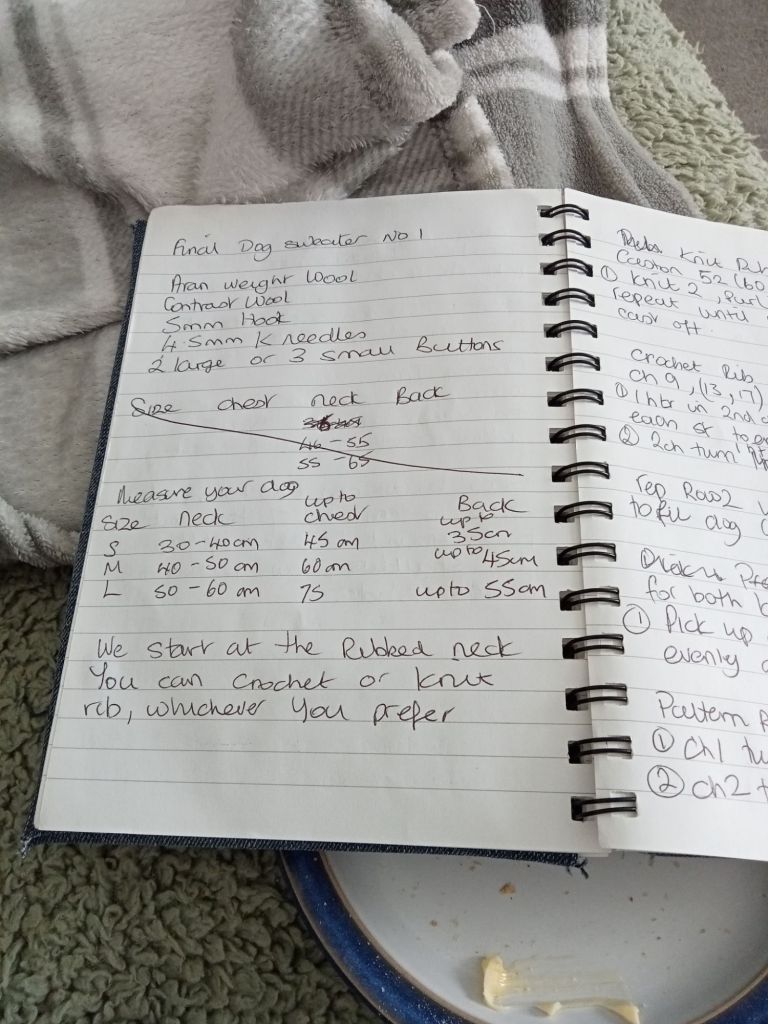 Final Dog sweater No 1
Aran weight Wool
Contrast Wool
5mm Hook
4.5mm K needles
2 large or 3 small Buttons
Size chest neck Back
46 - 55
55 - 65
Measure your dog
Size neck up to chest Back
S 30-40cm 45 cm up to 35cm
M 40 - 50 cm 60cm up to 45cm
L 50 - 60 cm 75 up to 55cm
We start at the Ribbed neck
You can crochet or knit
rib, whichever you prefer
Knit Rib
Caston 52 (60
① Knit 2, Purl
repeat until
cast off.
Crochet Rib
Ch 9, (13, 17)
① 1 htr in 2nd
each st to e
② 2ch turn
rep Row 2
to fit dog
for both
① Pick up
evenly
Pattern R
① Ch1 tu
② ch2 t